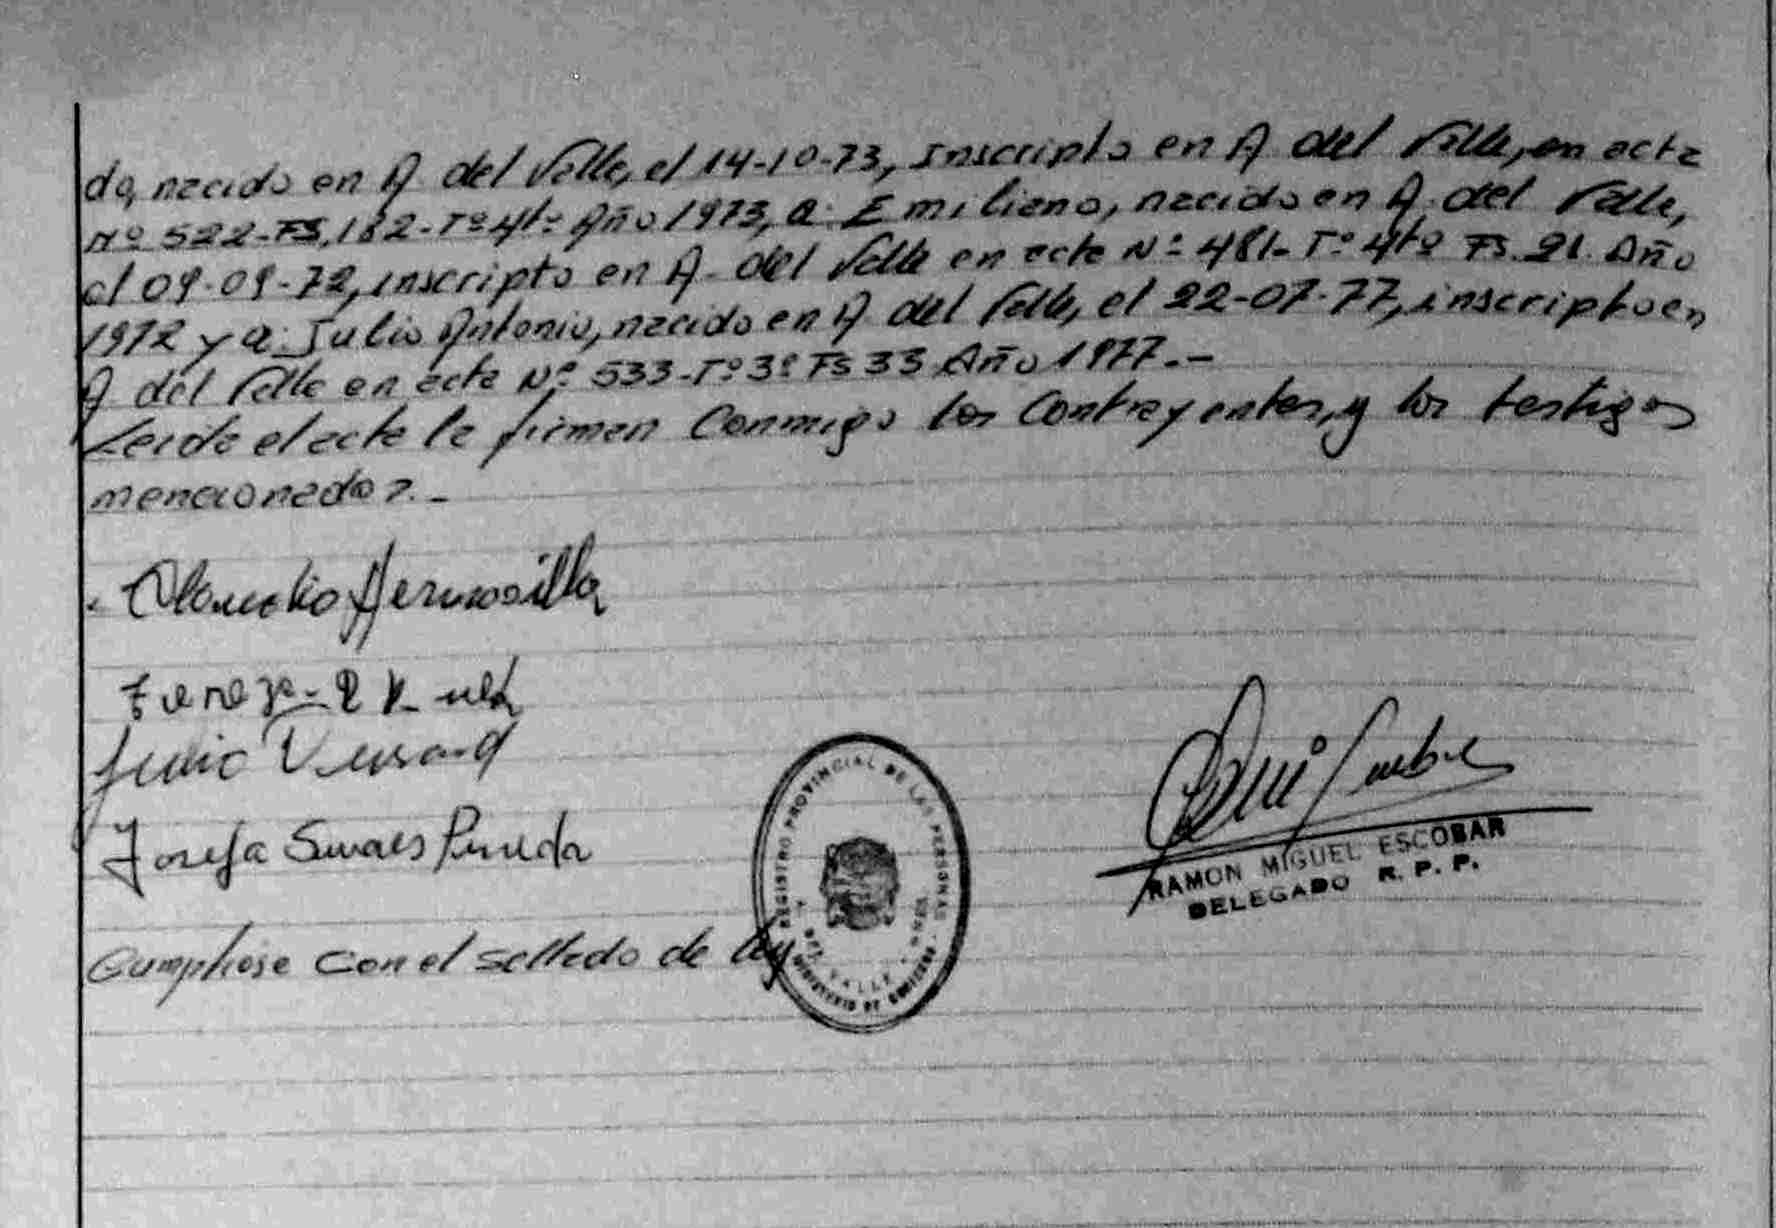 do, nacido en A. del Valle, el 14-10-73, Inscripto en A. del Valle, en acta
Nº 522-FS, 182-Tº 4to Año 1973, a: Emiliano, nacido en A. del Valle,
el 09-09-72, inscripto en A. del Valle en acta Nº 481- Tº 4to FS. 21. Año
1972 y a: Julio Antonio, nacido en A. del Valle, el 22-07-77, inscripto en
A del Valle en acta Nº 533-Tº 3º FS 33 Año 1977.-
Leida el acta la firman Conmigo los Contrayentes, y los testigos
mencionados.-
Hermosilla
Julio
Josefa Pineda
REGISTRO PROVINCIAL DE LAS PERSONAS
DEL VALLE
RAMON MIGUEL ESCOBAR
DELEGADO R. P. P.
Cumpliose con el sellado de ley.